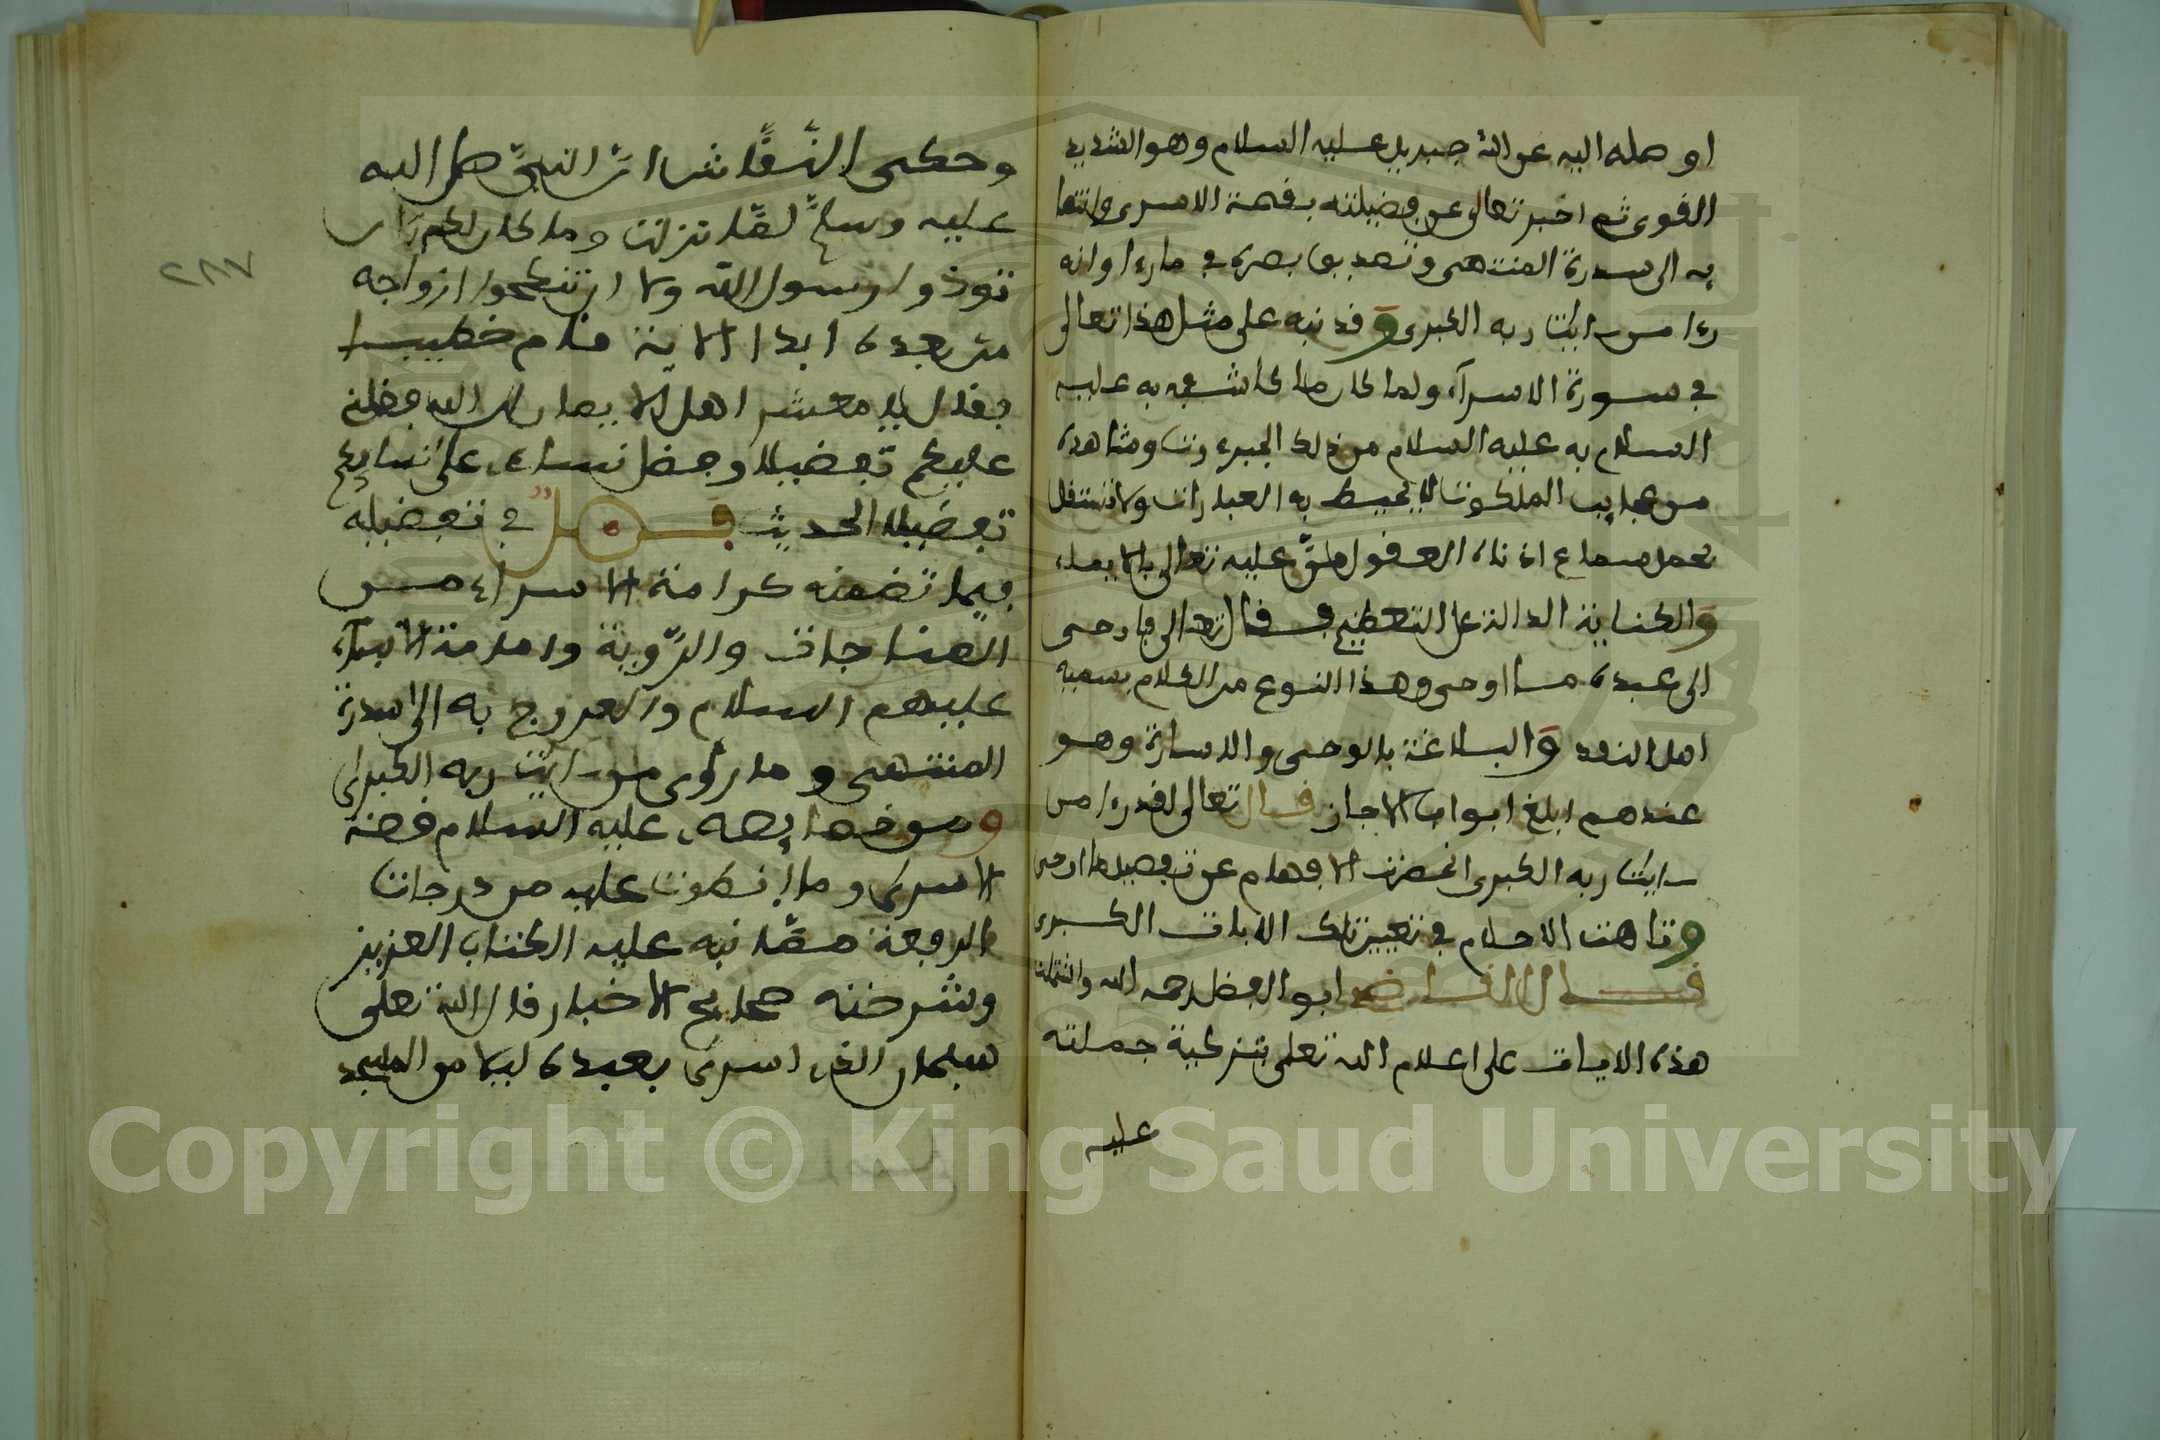 او صله اليه عن الله جبريل عليه السلام وهو الشديد
القوى ثم اخبر تعالى عن فضيلته بقصة الاسرى وانتها
به الى سدرة المنتهى وتصديق بصره في ما رءا وانه
رءا من ءايات ربه الكبرى وقد نبه على مثل هذا تعالى
في سورة الاسراء ولما كان ما كاشفه به عليه
السلام به عليه السلام من ذلك الجبروت ومشاهدة
من عجايب الملكوت لا يحيط به العبارات ولا تستقل
بحمل سماع ادناه العقول رمز عليه تعالى بالايماء
والكناية الدالة على التعظيم فقال تعالى فاوحى
الى عبده ما اوحى وهذا النوع من الكلام يسميه
اهل النقد والبلاغة بالوحي والاشارة وهو
عندهم ابلغ ابواب الايجاز قال تعالى لقد رءا من
ءايات ربه الكبرى انحصرت الافهام عن تفصيل ما اوحى
وتاهت الاحلام في تعيين تلك الايات الكبرى
قال القاضي ابو الفضل رحمه الله واشتملت
هذه الايات على اعلام الله تعلى بتزكية جملته
عليه
وحكى النقاش ان النبي صلى الله
عليه وسلم لما نزلت وما كان لكم ان
توذوا رسول الله ولا ان تنكحوا ازواجه
من بعده ابدا الاية قام خطيبا
فقال يا معشر اهل الايمان ان الله فضلني
عليكم تفضيلا وفضل نساءي على نسايكم
تفضيلا الحديث فصل في تفضيله
فيما تضمنه كرامة الاسراء من
المناجات والرؤية وامامة الانبياء
عليهم السلام والعروج به الى سدرة
المنتهى وما رأى من ءايات ربه الكبرى
ومن خصايصه عليه السلام قصة
الاسرى وما انطوت عليه من درجات
الرفعة مما نبه عليه الكتاب العزيز
وشرحته صحايح الاخبار قال الله تعلى
سبحان الذي اسرى بعبده ليلا من المسجد
٢٨٧
Copyright © King Saud University